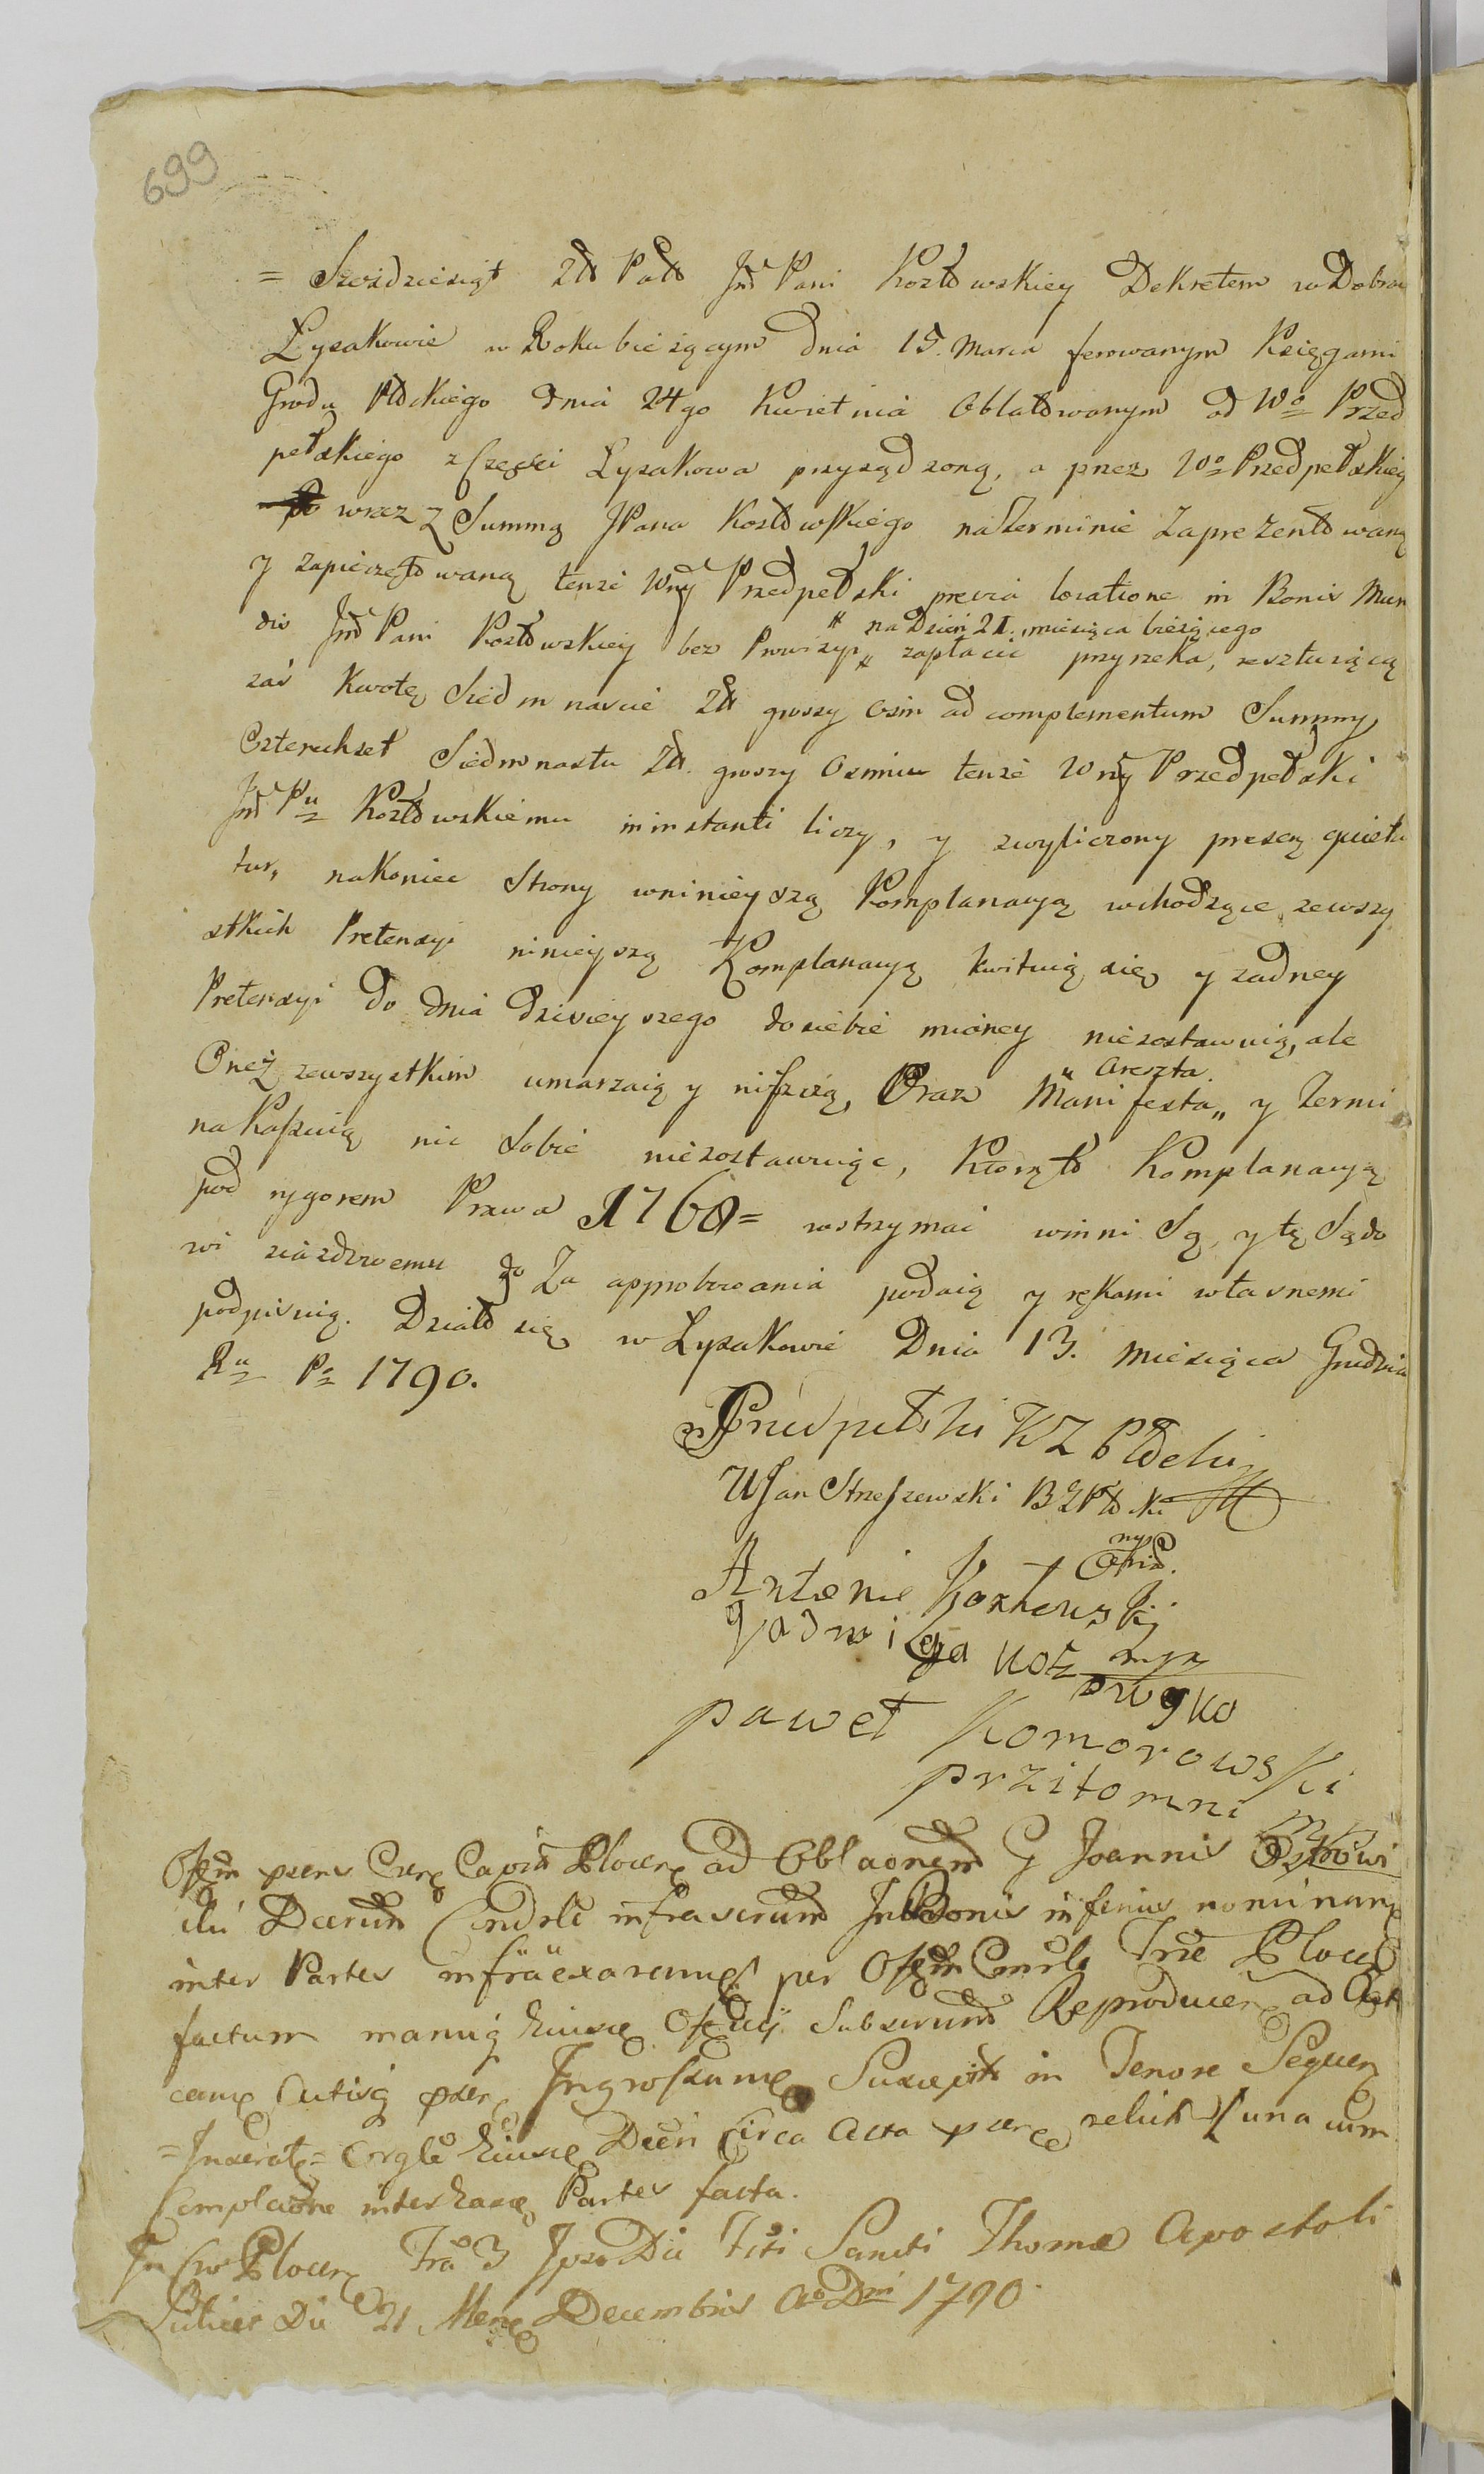 699
= Szescdziesiąt Zło Polo Jmć Pani Kozłowskiey Dekretem w Dobrac
Łysakowie w Roku bieżącym Dnia 15. Marca ferowanym Księgami
Grodu Płckiego dnia 24go Kwietnia Oblatowanym od Wo Przed
pełskiego z Części Łysakowa przysądzoną, a przez Wo Przedpełskieg
wraz z Summą JPana Kozłowskiego na Terminie zaprezentowaną
y zapieczętowaną tenże Wny Przedpełski previa locatione in Bonis Mun
" na Dzień 21. miesiąca bieżącego
dis Jmć Pani Kozłowskiey bez Prowizyi " zapłacić przyrzeka, resztuiącą
zaś kwotę Siedmnaście Zł groszy osim ad complementum Summy
Czterechset Siedmnastu Zł. groszy Osmiu tenże Wny Przedpełski
Jmć Pu Kozłowskiemu in instanti liczy, y z wyliczoney presenț quietu
tur, nakoniec Strony w ninieyszą Komplanacyą wchodzące ze wszy
stkich Pretensyi ninieyszą Komplanacyą kwituią się y żadney
Pretensyi do dnia dzisieyszego do siebie mianey niezostawuią, ale
Oneż ze wszystkim umarzaią y niszczą, Oraz Manifesta " y Termi
" Areszta.
na Kassuią nic Sobie niezostawuiąc, Którąto Komplanacyą
pod rygorem Prawa 1768 = wstrzymać winni Są, y tę Sądo
wi ziazdowemu do Za approbowania podaią y rękami własnemi
podpisuią. Działo się w Łysakowie Dnia 13. Miesiąca Grudnia
Ru Po 1790.
Przedpełski KZ
WJan Strzeszewski BZPł
Antonie Kozłowskij
mp
Jadwiga Kozłowska
paweł Komorowski
przitomni
mp
Offm prens Cap Plocen ad Oblaonem G Joannis Ostrowi
Decrum infrascrum In Bonis inferius nominan
inter Partes infra per Offm Trae Plocen
factum manuq Subscrum Reproducen ad
prsen Ingrossum Suscepit in Tenore Sequen
= Inserat = Decri Circa Acta prsen relict una cum
Complaone inter Partes facta.
In Cur Plocen Fra 3 Ipso Die Fsti Sancti Thomæ Apostoli
Scilicet Die 21 Mens Decembris Ao Dni 1790